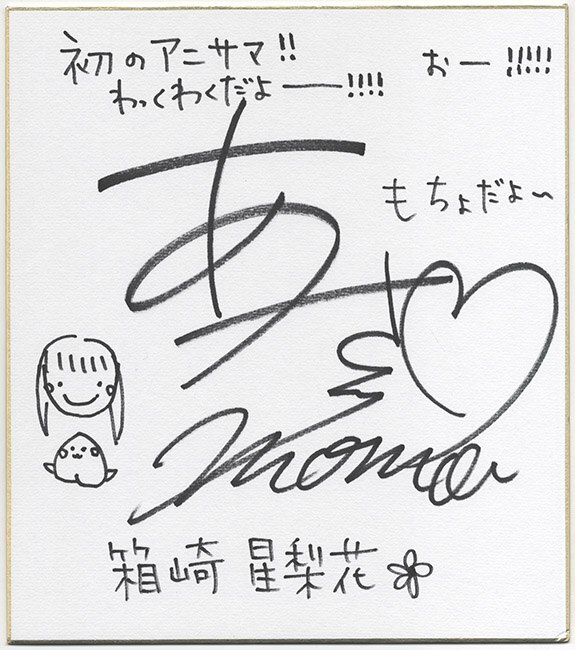 初のアニサマ!!
わっくわくだよー!!!!
おー!!!!!
もちょだよ〜
あ
momo
箱崎 星梨花